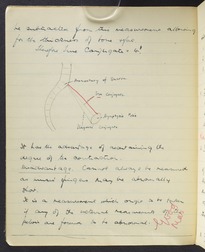 be subtracted from this measurement allowing
for the thickness of bone etc.
True Conjugate
Promontory of Sacrum
True Conjugate
Symphysis Pubis
Diagonal Conjugate
It has the advantage of ascertaining the
degree of the contraction.
Disadvantage. Cannot always be measured
as fingers may be abnormally
short.
It is a measurement which ought to be taken
if any of the external measurements
pelvis are found to be abnormal.